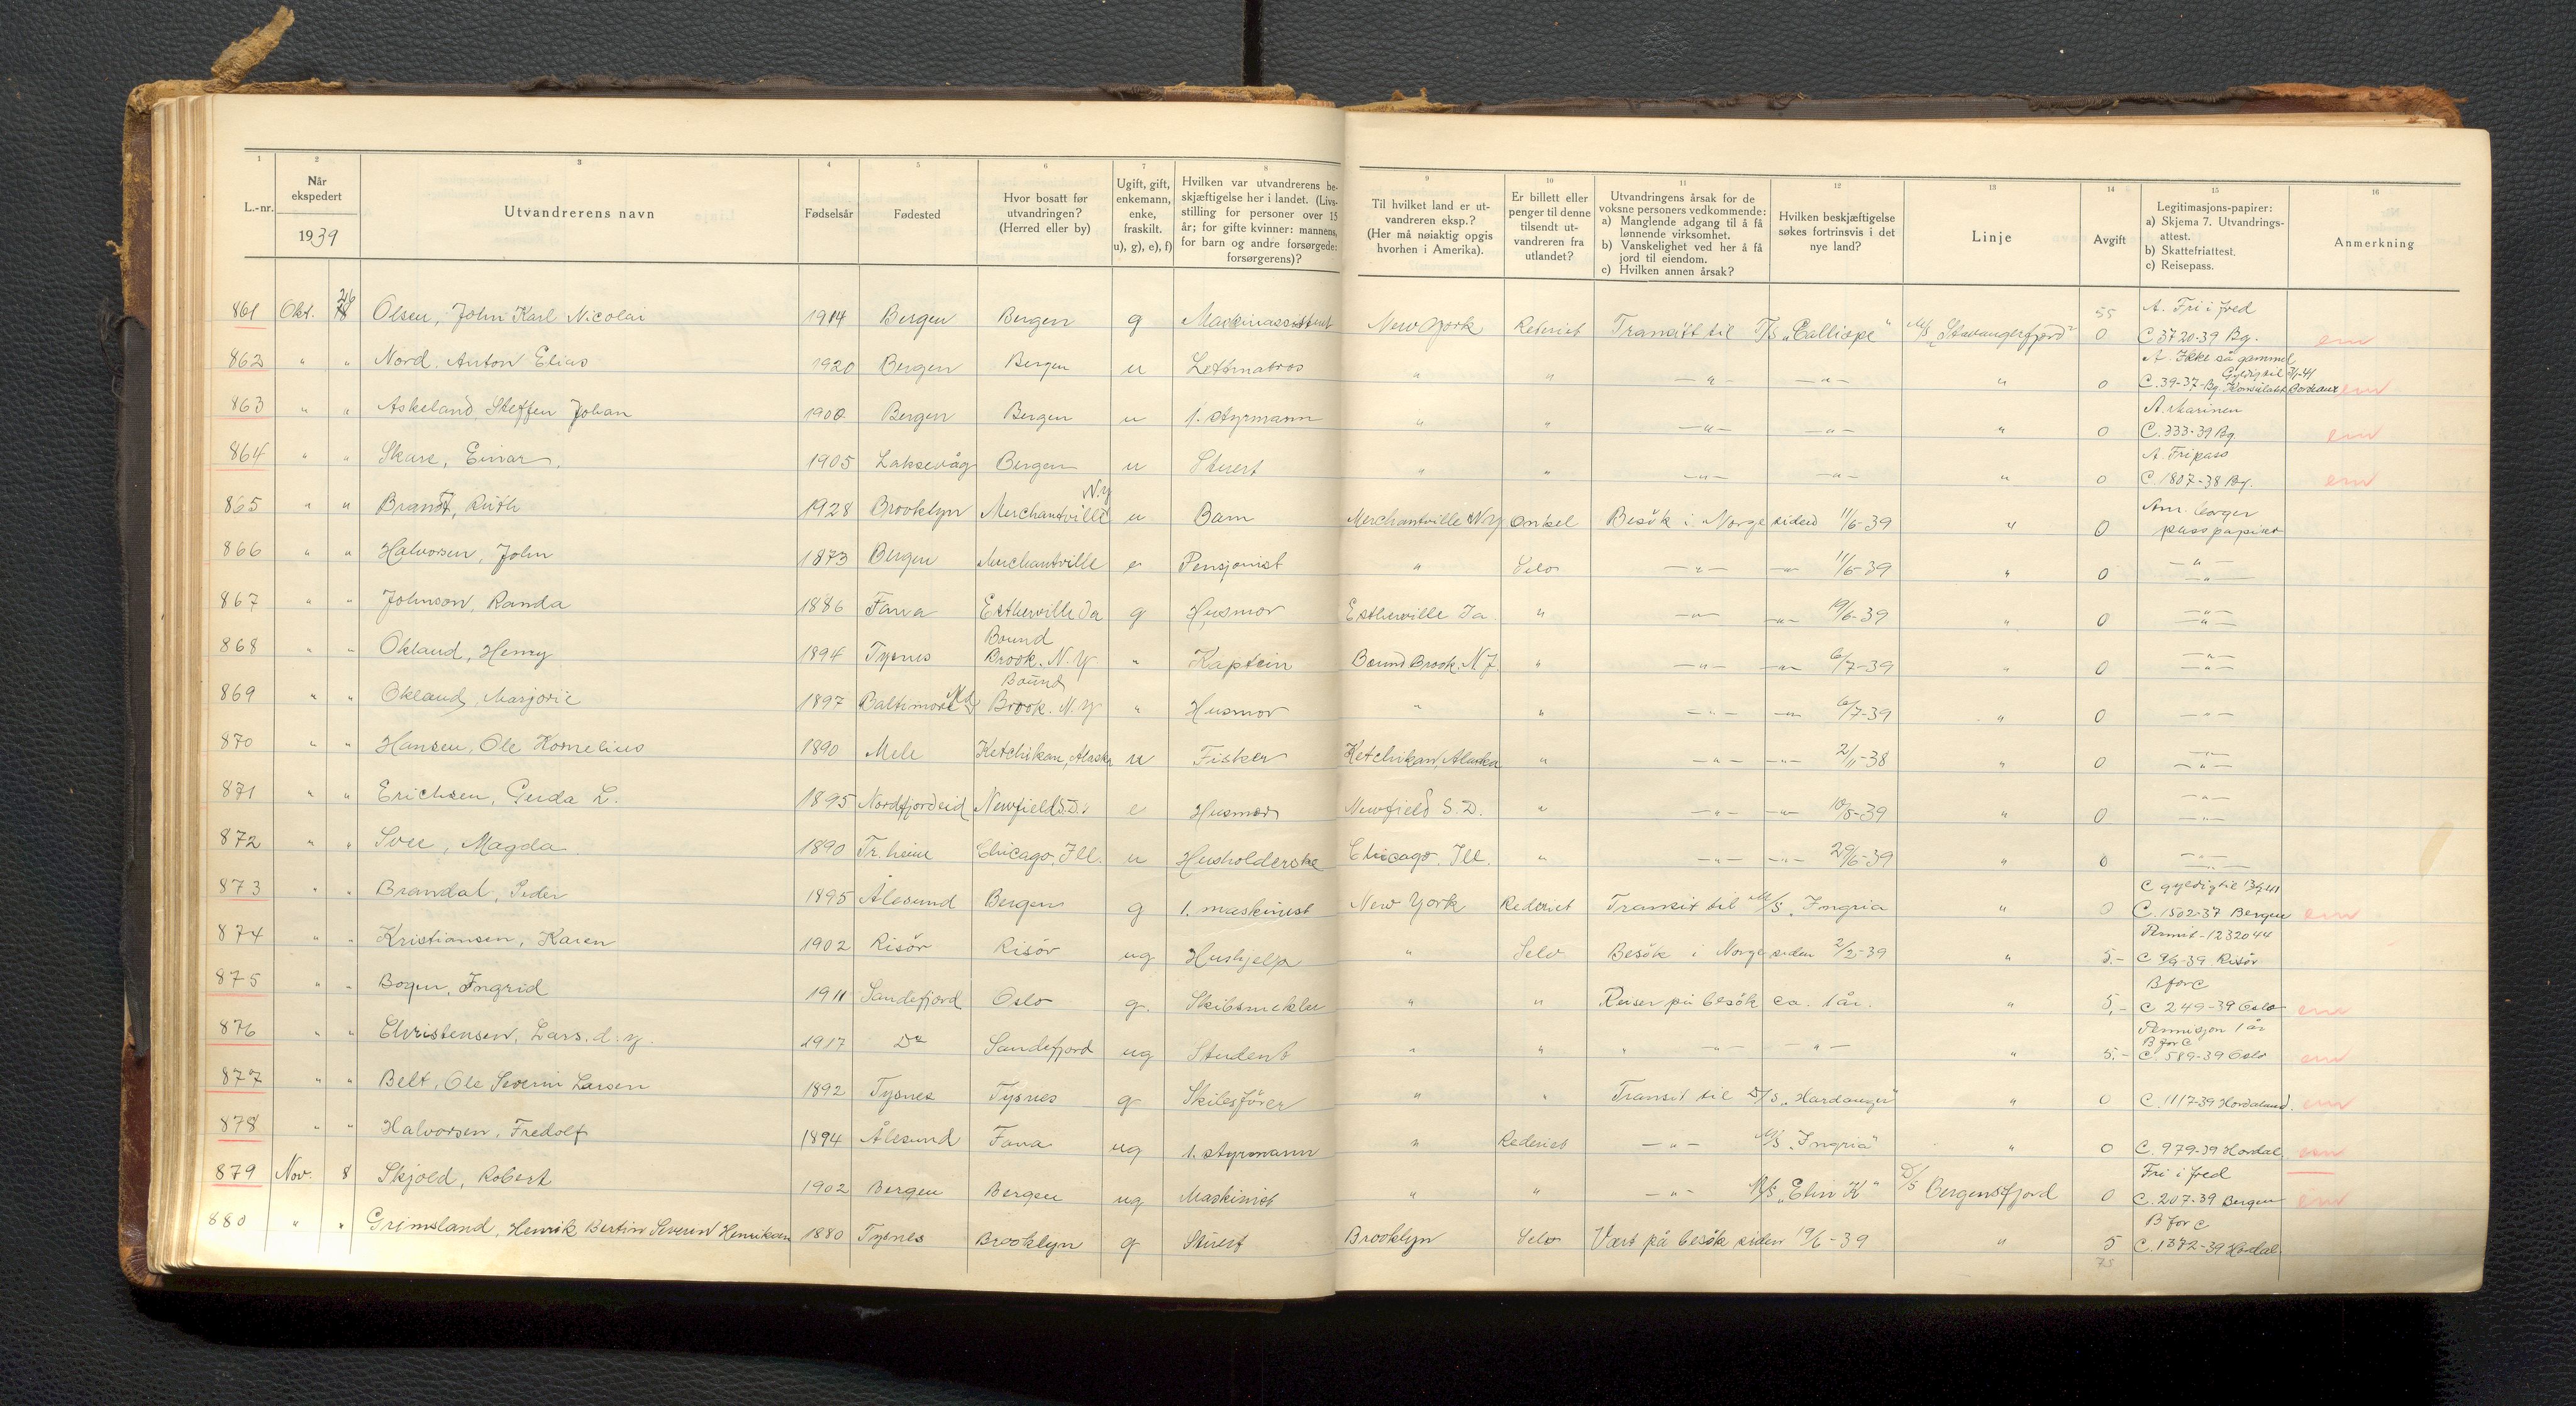 1 2 3 4 5 6 7 8 9 10 11 12 13 14 15 16
L.-nr. | Når ekspedert 1939 | Utvandrerens navn | Fødselsår | Fødested | Hvor bosatt før utvandringen? (Herred eller by) | Ugift, gift, enkemann, enke, fraskilt. u), g), e), f) | Hvilken var utvandrerens beskjæftigelse her i landet. (Livsstilling for personer over 15 år; for gifte kvinner: mannens, for barn og andre forsørgede: forsørgerens)? | Til hvilket land er utvandreren eksp.? (Her må nøiaktig opgis hvorhen i Amerika). | Er billett eller penger til denne tilsendt utvandreren fra utlandet? | Utvandringens årsak for de voksne personers vedkommende: a) Manglende adgang til å få lønnende virksomhet. b) Vanskelighet ved her å få jord til eiendom. c) Hvilken annen årsak? | Hvilken beskjæftigelse søkes fortrinsvis i det nye land? | Linje | Avgift | Legitimasjons-papirer: a) Skjema 7. Utvandringsattest. b) Skattefriattest. c) Reisepass. | Anmerkning
861 Okt. 26 Olsen, John Karl Nicolai 1914 Bergen Bergen g Maskinassistent New York Rederiet Transitt til T/s „Calliope" M/s „Stavangerfjord" 55 0 A. Fri i fred C 3720-39 Bg. em
862 " " Nord, Anton Elias 1920 Bergen Bergen u Lettmatros " " — " — — " — " 0 A. Ikke så gammel Gyldig til 7/1-41 C. 39-37-Bg. Konsulatet Bordeaux em
863 " " Askeland, Steffen Johan 1900 Bergen Bergen u 1. styrmann " " — " — — " — " 0 A. Marinen C. 333-39 Bg. em
864 " " Skare, Einar. 1905 Laksevåg Bergen u Stuert " " — " — — " — " 0 A. Fripass C. 1807-38 Bg. em
865 " " Brandt, Ruth 1928 Brooklyn Merchantville N.Y u Barn Merchantville N.Y onkel Besök i Norge siden 11/6-39 " 0 Am. borger pass papirer
866 " " Halvorsen, John 1873 Bergen Merchantville e Pensjonist " Selv — " — — " — 11/6-39 " 0 — " — — " —
867 " " Johnson, Randa 1886 Fana Estherville Ia g Husmor Estherville Ia. " — " — — " — 19/6-39 " 0 — " — — " —
868 " " Økland, Henry 1894 Tysnes Bound Brook. N.Y " Kaptein Bound Brook. N.J. " — " — — " — 6/7-39 " 0 — " — — " —
869 " " Økland, Marjorie 1897 Baltimore Md Bound Brook. N.Y " Husmor " " — " — — " — 6/7-39 " 0 — " —
870 " " Hansen, Ole Kornelius 1890 Mele Ketchikan, Alaska u Fisker Ketchikan, Alaska " — " — — " — 2/11-38 " 0 — " — — " —
871 " " Erichsen, Gerda L. 1895 Nordfjordeid Newfield S.D. e Husmor Newfield S.D. " — " — — " — 10/5-39 " 0 — " — — " —
872 " " Magda 1890 Tr.heim Chicago, Ill. u Husholderske Chicago. Ill. " — " — — " — 29/6-39 " 0 — " — — " —
873 " " Brandal, Peder 1895 Ålesund Bergen g 1. maskinist New York Rederiet Transit til M/s „Ingria " 0 C gyldig til C. 1502-37 Bergen em
874 " " Kristiansen, Karen 1902 Risör Risör ug Hushjelp " Selv Besök i Norge siden 2/2-39 " 5.- Permit-1232044 C 96-39 Risör
875 " " Ingrid 1911 Sandefjord Oslo g. Skibsmekler " " Reiser på besök ca. 1 år. " 5,- B for C C 249-39 Oslo em
876 " " Christensen, Lars. d. y. 1917 Do Sandefjord ug Student " " " — " — — " — " 5.- Permisjon 1 år B for C C. 589-39 Oslo em
877 " " Belt, Ole Severin Larsen 1892 Tysnes Tysnes g Skibsförer " " Transit til D/s „Hardanger" " 0 C. 1117-39 Hordaland. em
878 " " Halvorsen, Fredolf 1894 Ålesund Fana ug 1. styrmann " Rederiet — " — M/s „Ingria" " 0 C. 979-39 Hordal. em
879 Nov. 8 Skjold, Robert 1902 Bergen Bergen ug Maskinist " " — " — M/s „Elin K" D/s Bergensfjord 0 Fri i fred C. 207-39 Bergen em
880 " " Grimsland, Henrik Bertin Severin Henriksen 1880 Tysnes Brooklyn g Stuert Brooklyn Selv Vært på besök siden 19/6-39 " 5 B for C C. 1372-39 Hordal.
75